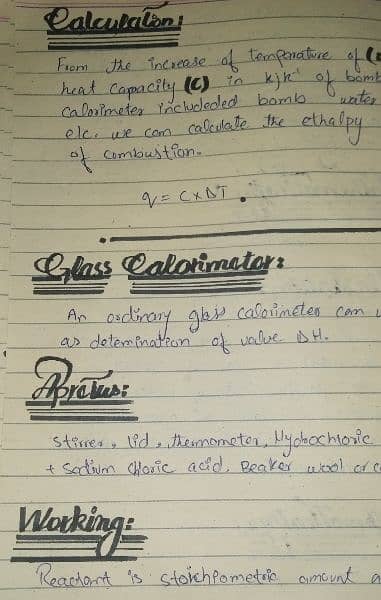 Calculation:
From the increase of temperature of
heat capacity (C) in kjk⁻¹ of bomb
calorimeter includeded bomb water
etc. we can calculate the ethalpy
of combustion.
q = C x ΔT.
Glass Calorimator:
An ordinary glass calorimeter can
as detemination of value ΔH.
Apratus:
Stirrer, lid, thermometer, Hydochloric
+ Sodium chloric acid, Beaker wool or
Working:
Reactant is stoichpometric amount